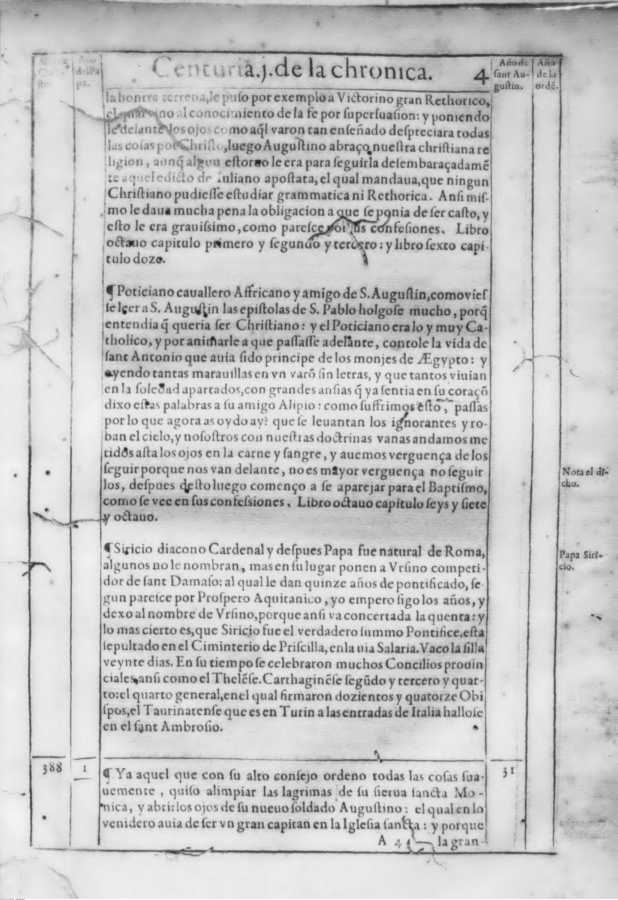 Centuria.j. de la chronica. 4
Año de sant Augustin.
Año de la ordē.
la honrra terrena, le puso por exemplo a Victorino gran Rethorico,
al conocimiento de la fe por supersuasion: y poniendo
le delante los ojos como aq̃l varon tan enseñado despreciara todas
las cosas por Christo, luego Augustino abraço nuestra christiana re
ligion, aunq̃ algun estoruo le era para seguirla desembaraçadamē
te aquel edicto de Iuliano apostata, el qual mandaua, que ningun
Christiano pudiesse estudiar grammatica ni Rethorica. Ansi mis-
mo le daua mucha pena la obligacion a que se ponia de ser casto, y
esto le era grauissimo, como paresce por sus confesiones. Libro
octauo capitulo primero y segundo y tercero: y libro sexto capi-
tulo doze.
¶ Poticiano cauallero Affricano y amigo de S. Augustin, como vies
se leer a S. Augustin las epistolas de S. Pablo holgose mucho, porq̃
entendia q̃ queria ser Christiano: y el Poticiano era lo y muy Ca-
tholico, y por animarle a que passasse adelante, contole la vida de
sant Antonio que auia sido principe de los monjes de Ægypto: y
oyendo tantas marauillas en vn varō sin letras, y que tantos viuian
en la soledad apartados, con grandes ansias q̃ ya sentia en su coraçō
dixo estas palabras a su amigo Alipio: como suffrimos esto, passas
por lo que agora as oydo ay? que se leuantan los ignorantes y ro-
ban el cielo, y nosotros con nuestras doctrinas vanas andamos me
tidos asta los ojos en la carne y sangre, y auemos verguença de los
seguir porque nos van delante, no es mayor verguença no seguir
los, despues desto luego començo a se aparejar para el Baptismo,
como se vee en sus confessiones. Libro octauo capitulo seys y siete
y octauo.
Nota el dicho.
¶ Siricio diacono Cardenal y despues Papa fue natural de Roma,
algunos no le nombran, mas en su lugar ponen a Vrsino competi-
dor de sant Damaso: al qual le dan quinze años de pontificado, se-
gun paresce por Prospero Aquitanico, yo empero sigo los años, y
dexo al nombre de Vrsino, porque ansi va concertada la quenta: y
lo mas cierto es, que Siricio fue el verdadero summo Pontifice, esta
sepultado en el Ciminterio de Priscilla, en la uia Salaria. Vaco la silla
veynte dias. En su tiempo se celebraron muchos Concilios prouin
ciales, ansi como el Thelēse. Carthaginēse segūdo y tercero y quar-
to: el quarto general, en el qual firmaron dozientos y quatorze Obi
spos, el Taurinatense que es en Turin a las entradas de Italia hallose
en el sant Ambrosio.
Papa Siricio.
388 1 31
¶ Ya aquel que con su alto consejo ordeno todas las cosas sua-
uemente, quiso alimpiar las lagrimas de su sierua sancta Mo-
nica, y abrir los ojos de su nueuo soldado Augustino: el qual en lo
venidero auia de ser vn gran capitan en la Iglesia sancta: y porque
A 4 la gran